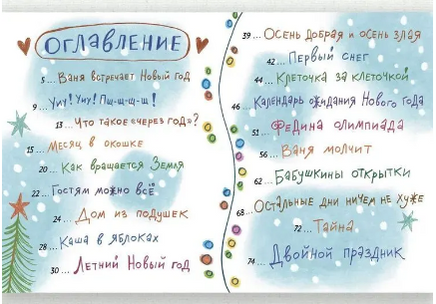 Оглавление
5 ... Ваня встречает Новый год
9 ... Уиу! Уиу! Пщ-щ-щ-щ!
13 ... Что такое «через год»?
15 ... Месяц в окошке
20 ... Как вращается Земля
22 ... Гостям можно всё
24 ... Дом из подушек
28 ... Каша в яблоках
30 ... Летний Новый год
39 ... Осень добрая и осень злая
42 ... Первый снег
44 ... Клеточка за клеточкой
46 Календарь ожидания Нового года
51 ... Федина олимпиада
56 ... Ваня молчит
62 ... Бабушкины открытки
68 ... Остальные дни ничем не хуже
72 ... Тайна
74 ... Двойной праздник